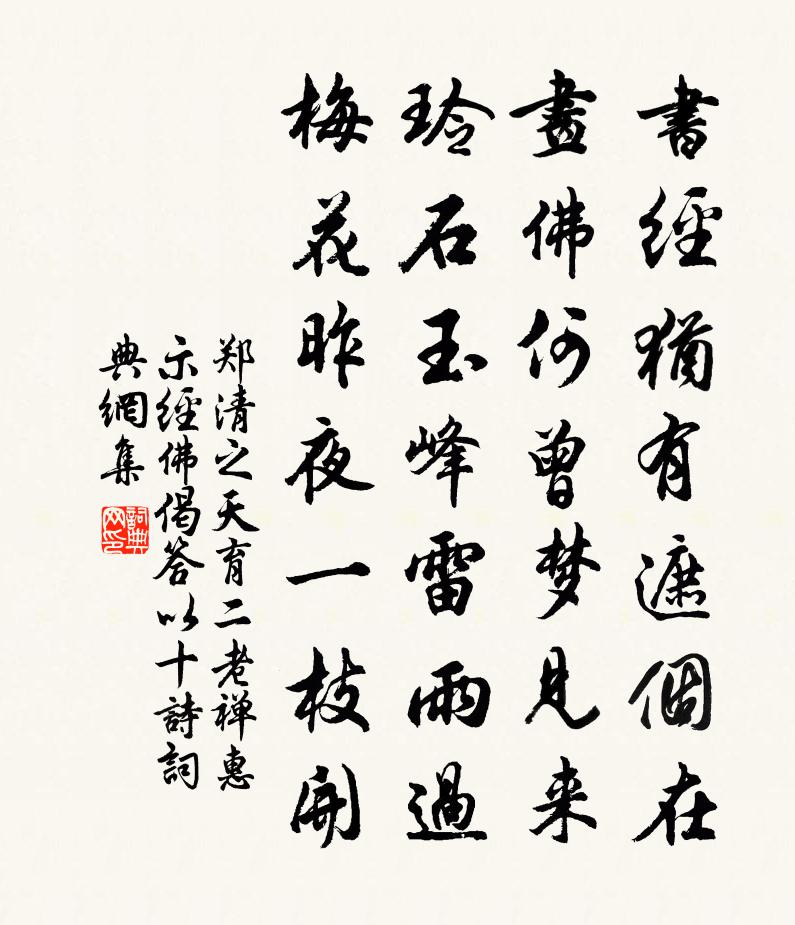 書經猶有遮個在
畫佛何曾梦見来
玲石玉峰雷雨過
梅花昨夜一枝開
郑清之天育二老禅惠
示經佛偈答以十詩詞
典網集
詞典
网印